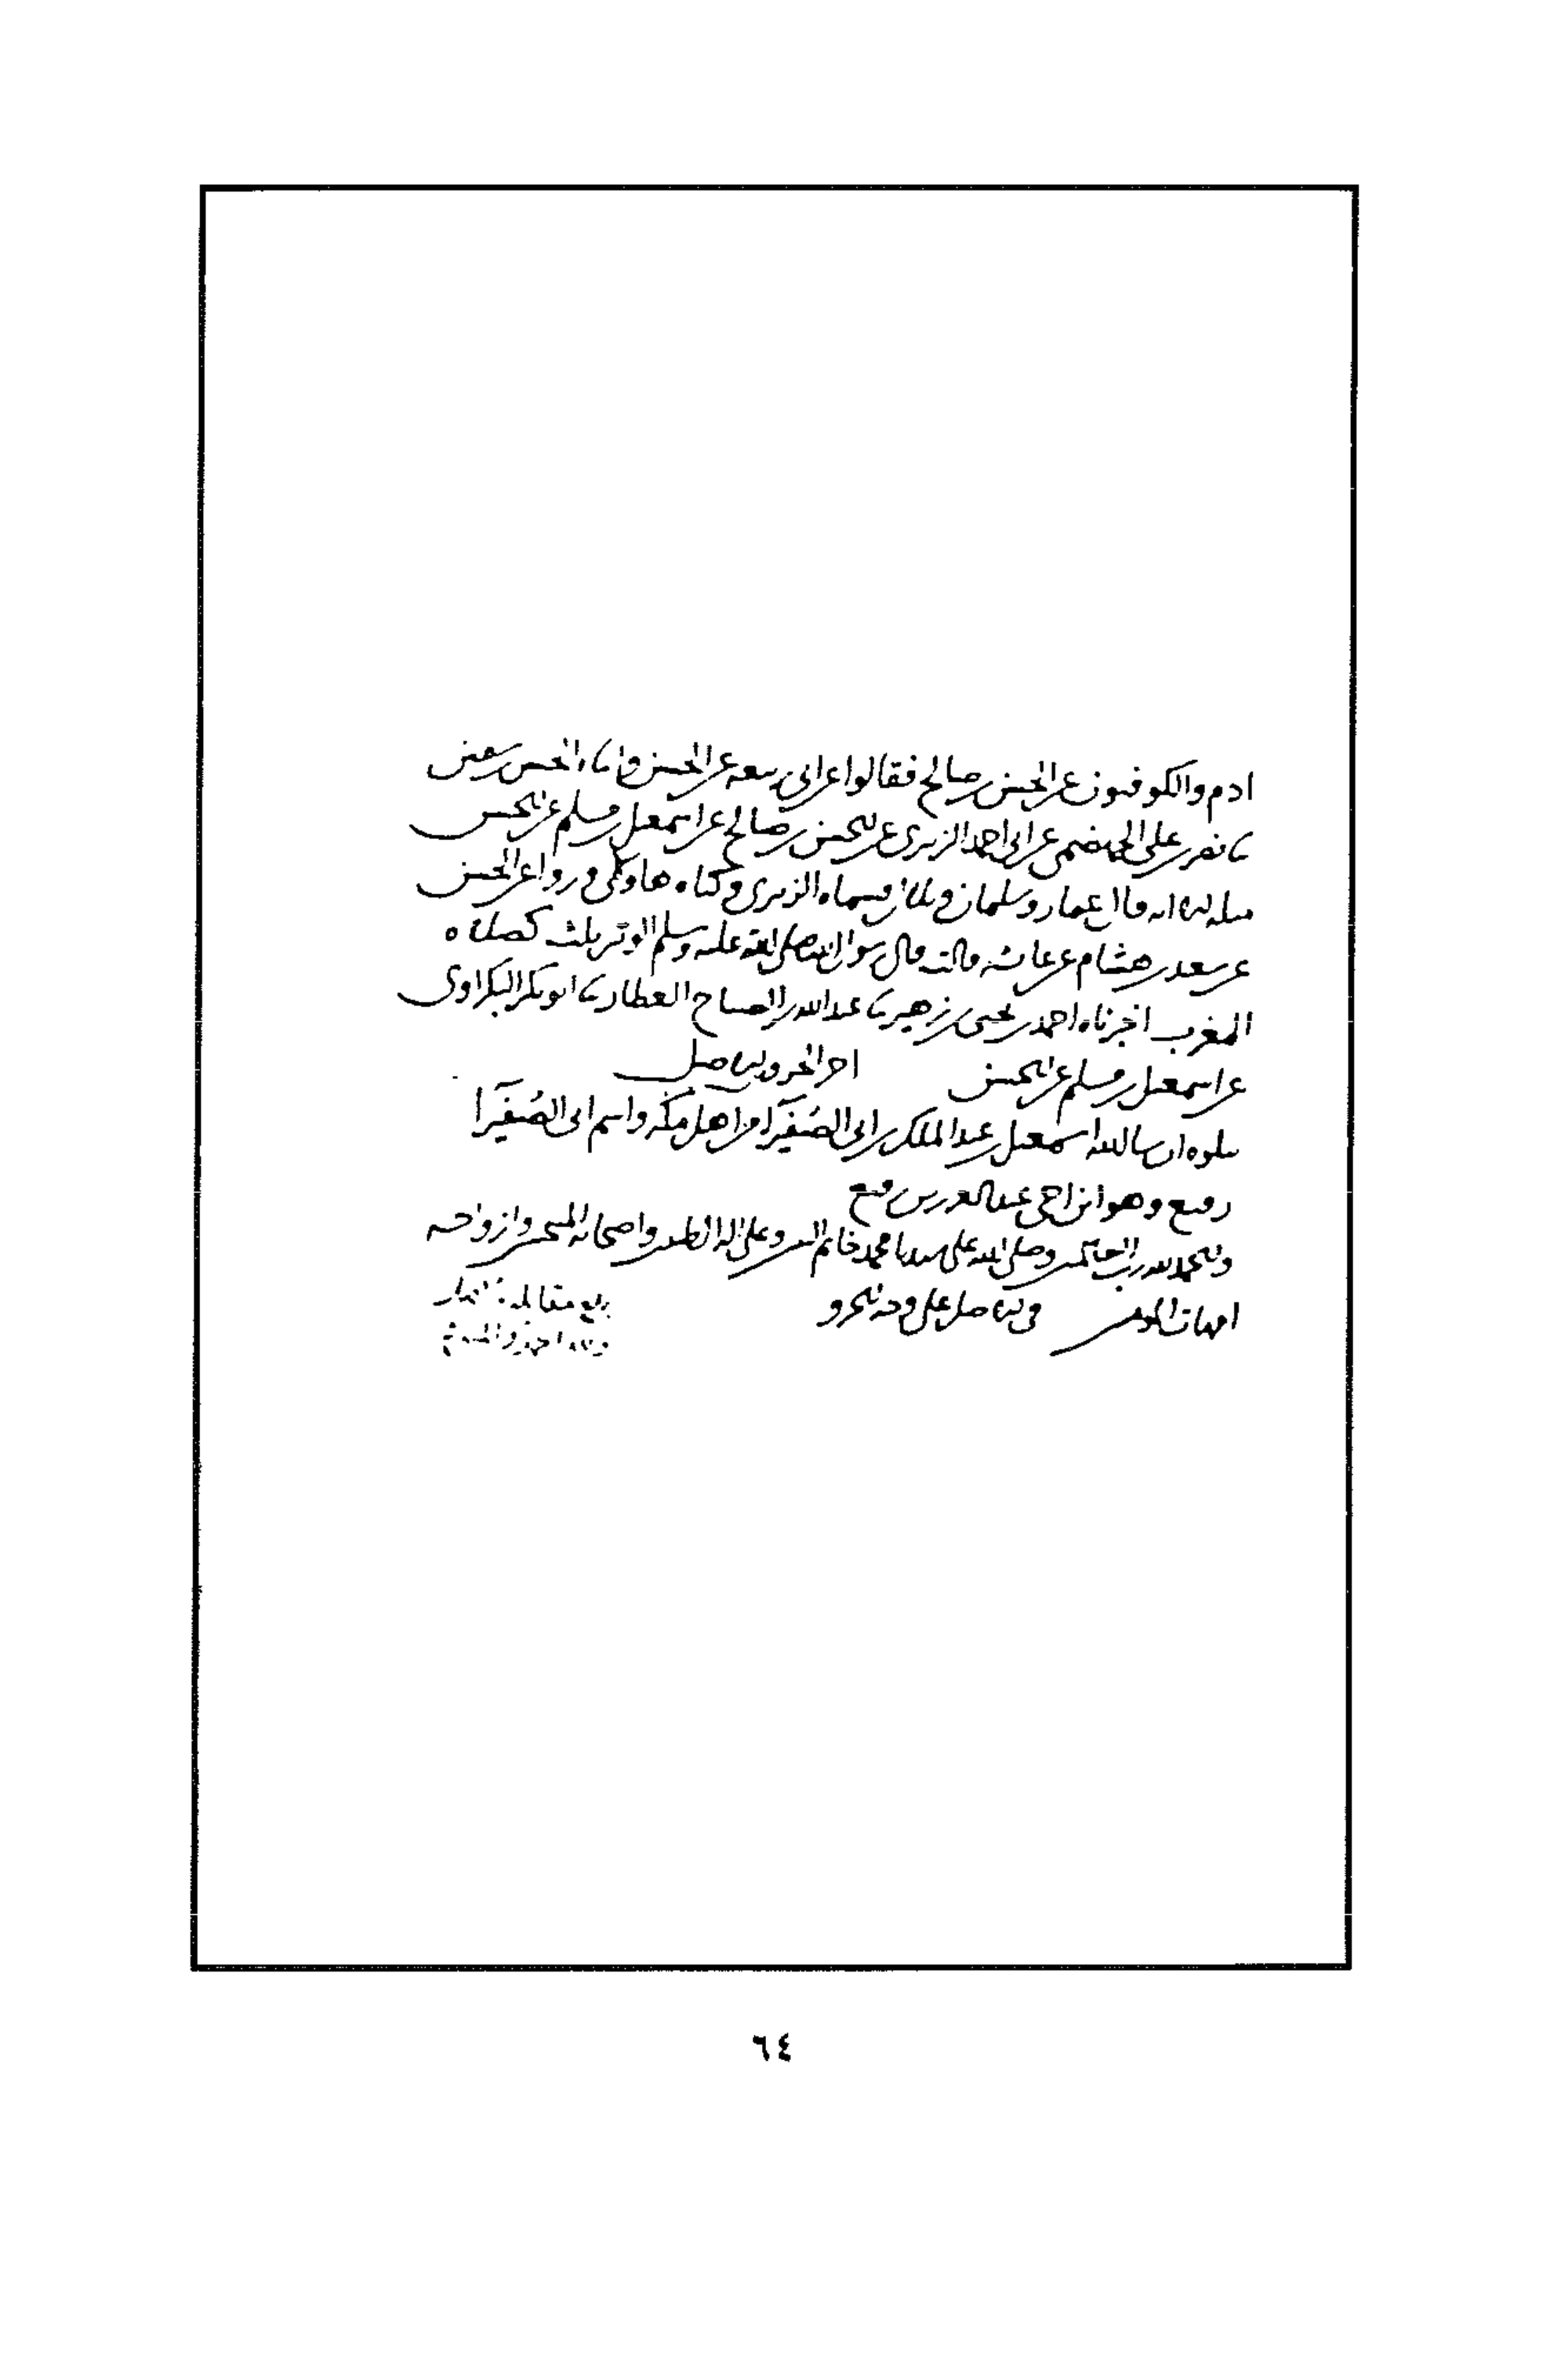 ادم والكوفيون عن الحسن بن صالح فقالوا عن ابي ربيعه عن الحسن واما الحسن بن
نا نصر بن علي الجهضمي عن ابي احمد الزبيري عن الحسن بن صالح عن اسمعيل بن مسلم عن الحسن
عمار وسلمان الزبيري وكناه وروا عن الحسن
عن سعد بن هشام عن عائشه قالت قال رسول الله صلى الله عليه وسلم الوتر بثلث كصلاة
المغرب اخبرناه احمد بن يحيى بن زهير نا عبد الله بن الصباح العطار نا ابو بكر البكراوي
عن اسمعيل بن مسلم عن الحسن اخر الجزو
يتلوه ان شا الله اسمعيل بن عبد الملك بن ابي الصفيرا من اهل مكه واسم ابي الصفيرا
رفيع وهو ابن اخي عبد العزيز بن رفيع
والحمد لله رب العالمين وصلى الله على سيدنا محمد خاتم النبيين وعلى اله الطيبين واصحابه المنتجبين وازواجه
امهات المومنين على وجه الجزو
بلغ مقابله
٦٤